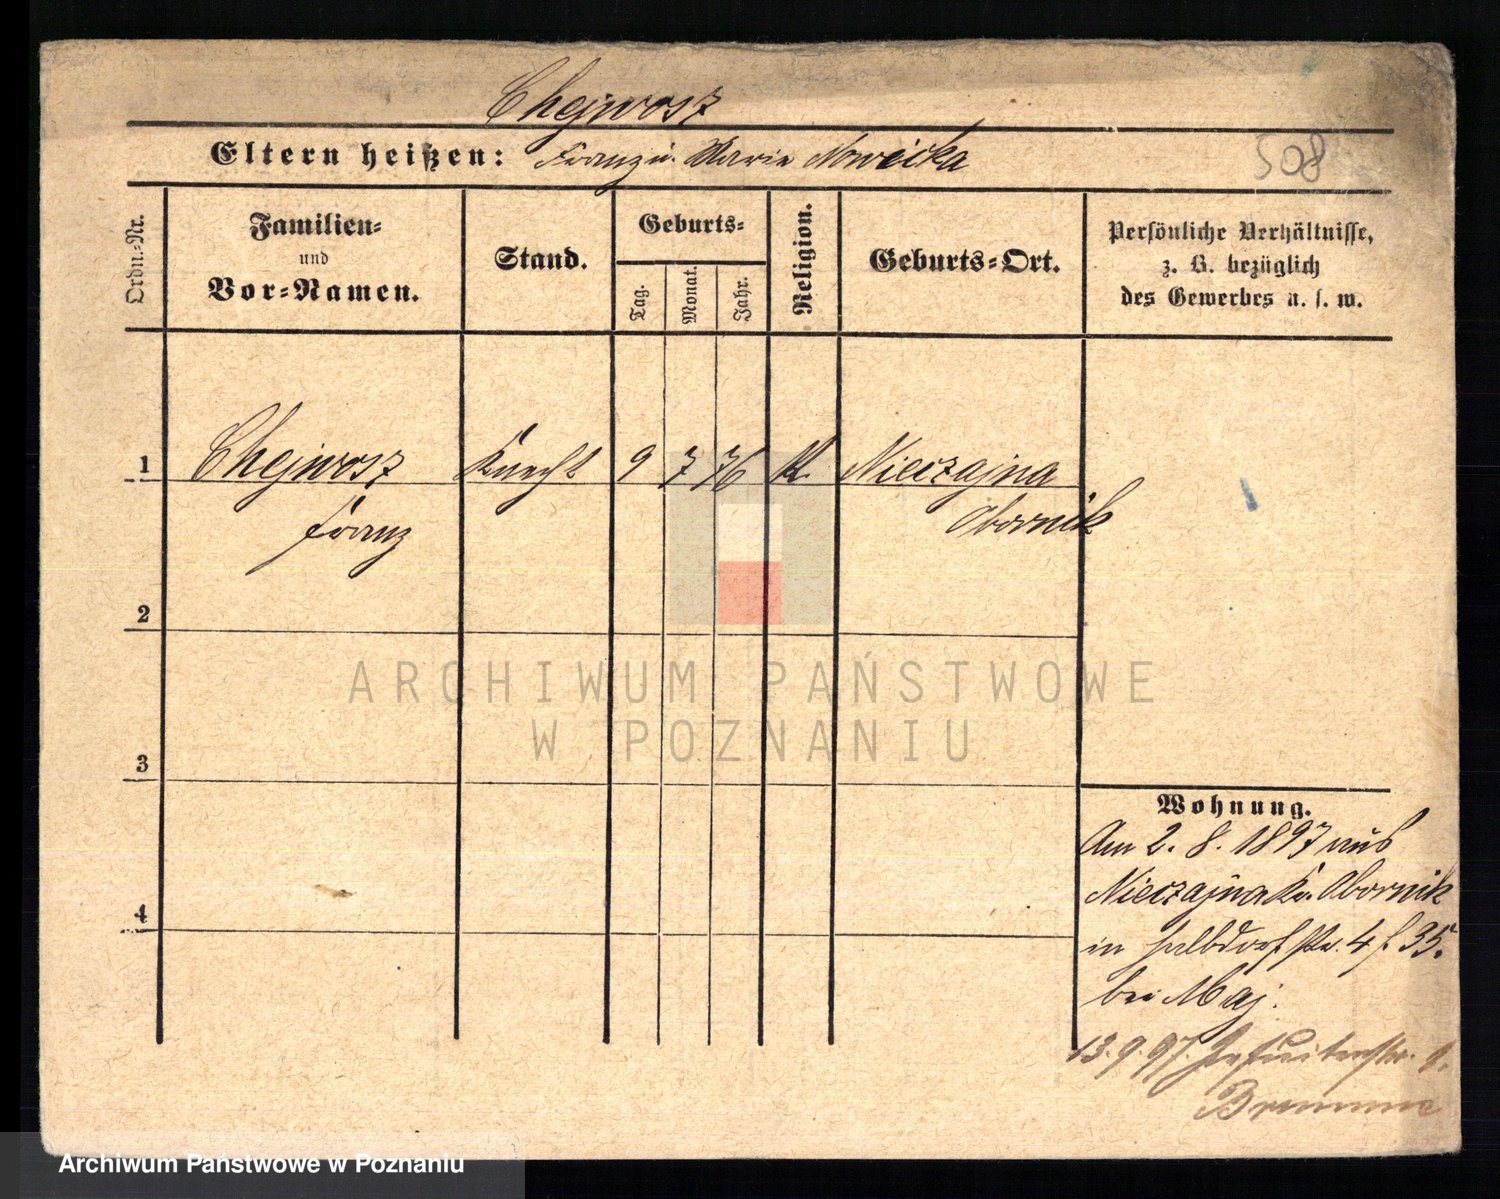 Chejwosz
Eltern heißen: Franz u. Marie Nowicka
508
Ordn.-Nr.
Familien-
und
Vor-Namen.
Stand.
Geburts-
Tag.
Monat.
Jahr.
Religion.
Geburts-Ort.
Persönliche Verhältnisse,
z. B. bezüglich
des Gewerbes u. s. w.
1 Chejwosz Knecht 9 7 76 K. Nieczajna
Franz Obornik
2
3
4
Wohnung.
Am 2. 8. 1897 aus
Nieczajna Kr. Obornik
in Halbdorfstr. 4 f. 35.
bei Maj.
13.9.97. Jesuitenstr. 9.
Brumme
ARCHIWUM PAŃSTWOWE
W POZNANIU
Archiwum Państwowe w Poznaniu